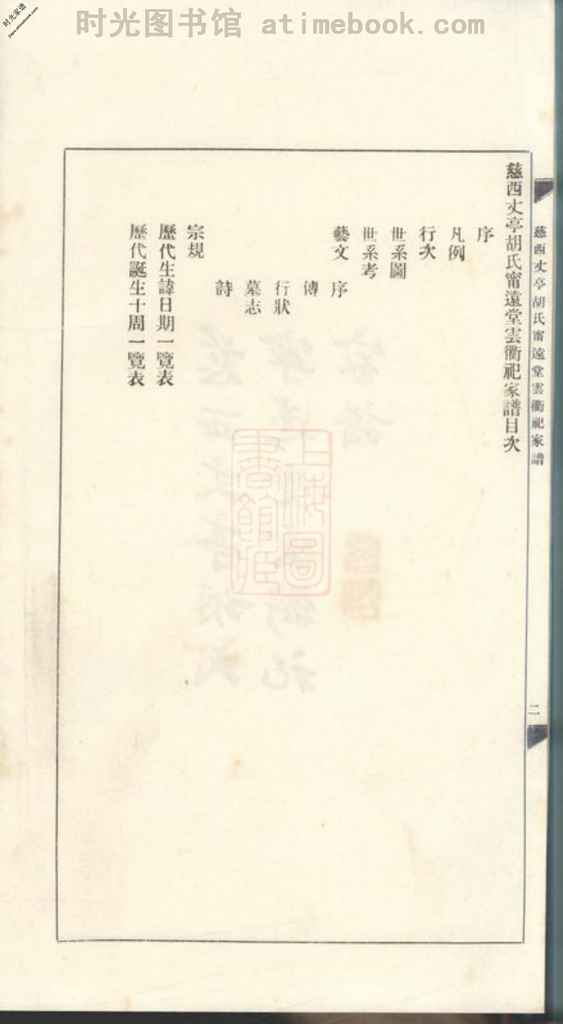 时光图书馆 atimebook.com
时光家谱
www.atimebook.com
慈西丈亭胡氏甯遠堂雲衢祀家譜
二
慈西丈亭胡氏甯遠堂雲衢祀家譜目次
序
凡例
行次
世系圖
世系考
藝文
序
傳
行狀
墓志
詩
宗規
歷代生諱日期一覽表
歷代誕生十周一覽表
上海圖
書館藏